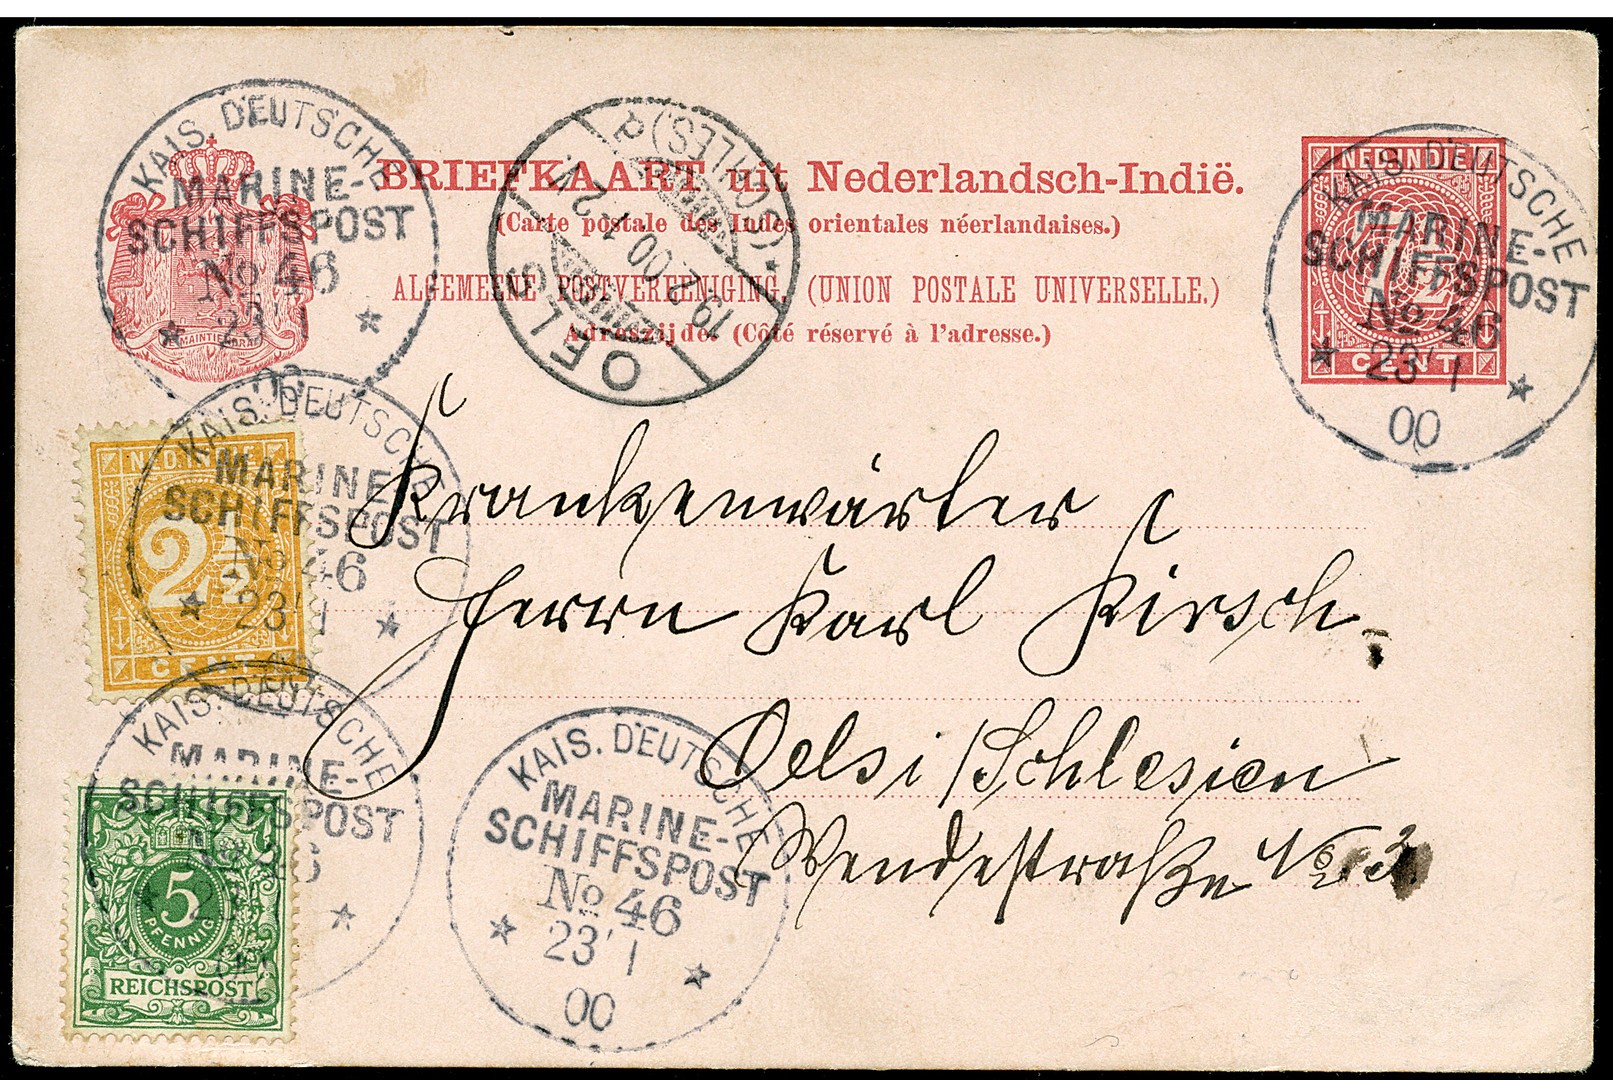 BRIEFKAART uit Nederlandsch-Indië.
(Carte postale des Indes orientales néerlandaises.)
ALGEMEENE POSTVEREENIGING. (UNION POSTALE UNIVERSELLE.)
Adreszijde. (Côté réservé à l'adresse.)
JE MAINTIENDRAI
KAIS. DEUTSCHE
MARINE-
SCHIFFSPOST
No 46
23/1
00
OELS
19.2.00. 1-2 N.
(SCHLES)
NED. INDIE
7 1/2
CENT
KAIS. DEUTSCHE
MARINE-
SCHIFFSPOST
No 46
23/1
00
NED. INDIE
2 1/2
CENT
KAIS. DEUTSCHE
MARINE-
SCHIFFSPOST
No 46
23/1
KAIS. DEUTSCHE
MARINE-
SCHIFFSPOST
No 46
5
PFENNIG
REICHSPOST
KAIS. DEUTSCHE
MARINE-
SCHIFFSPOST
No 46
23/1
00
Krankenwärter
Herrn Karl Kirsch.
Oels i/Schlesien
Wendestraße No 3